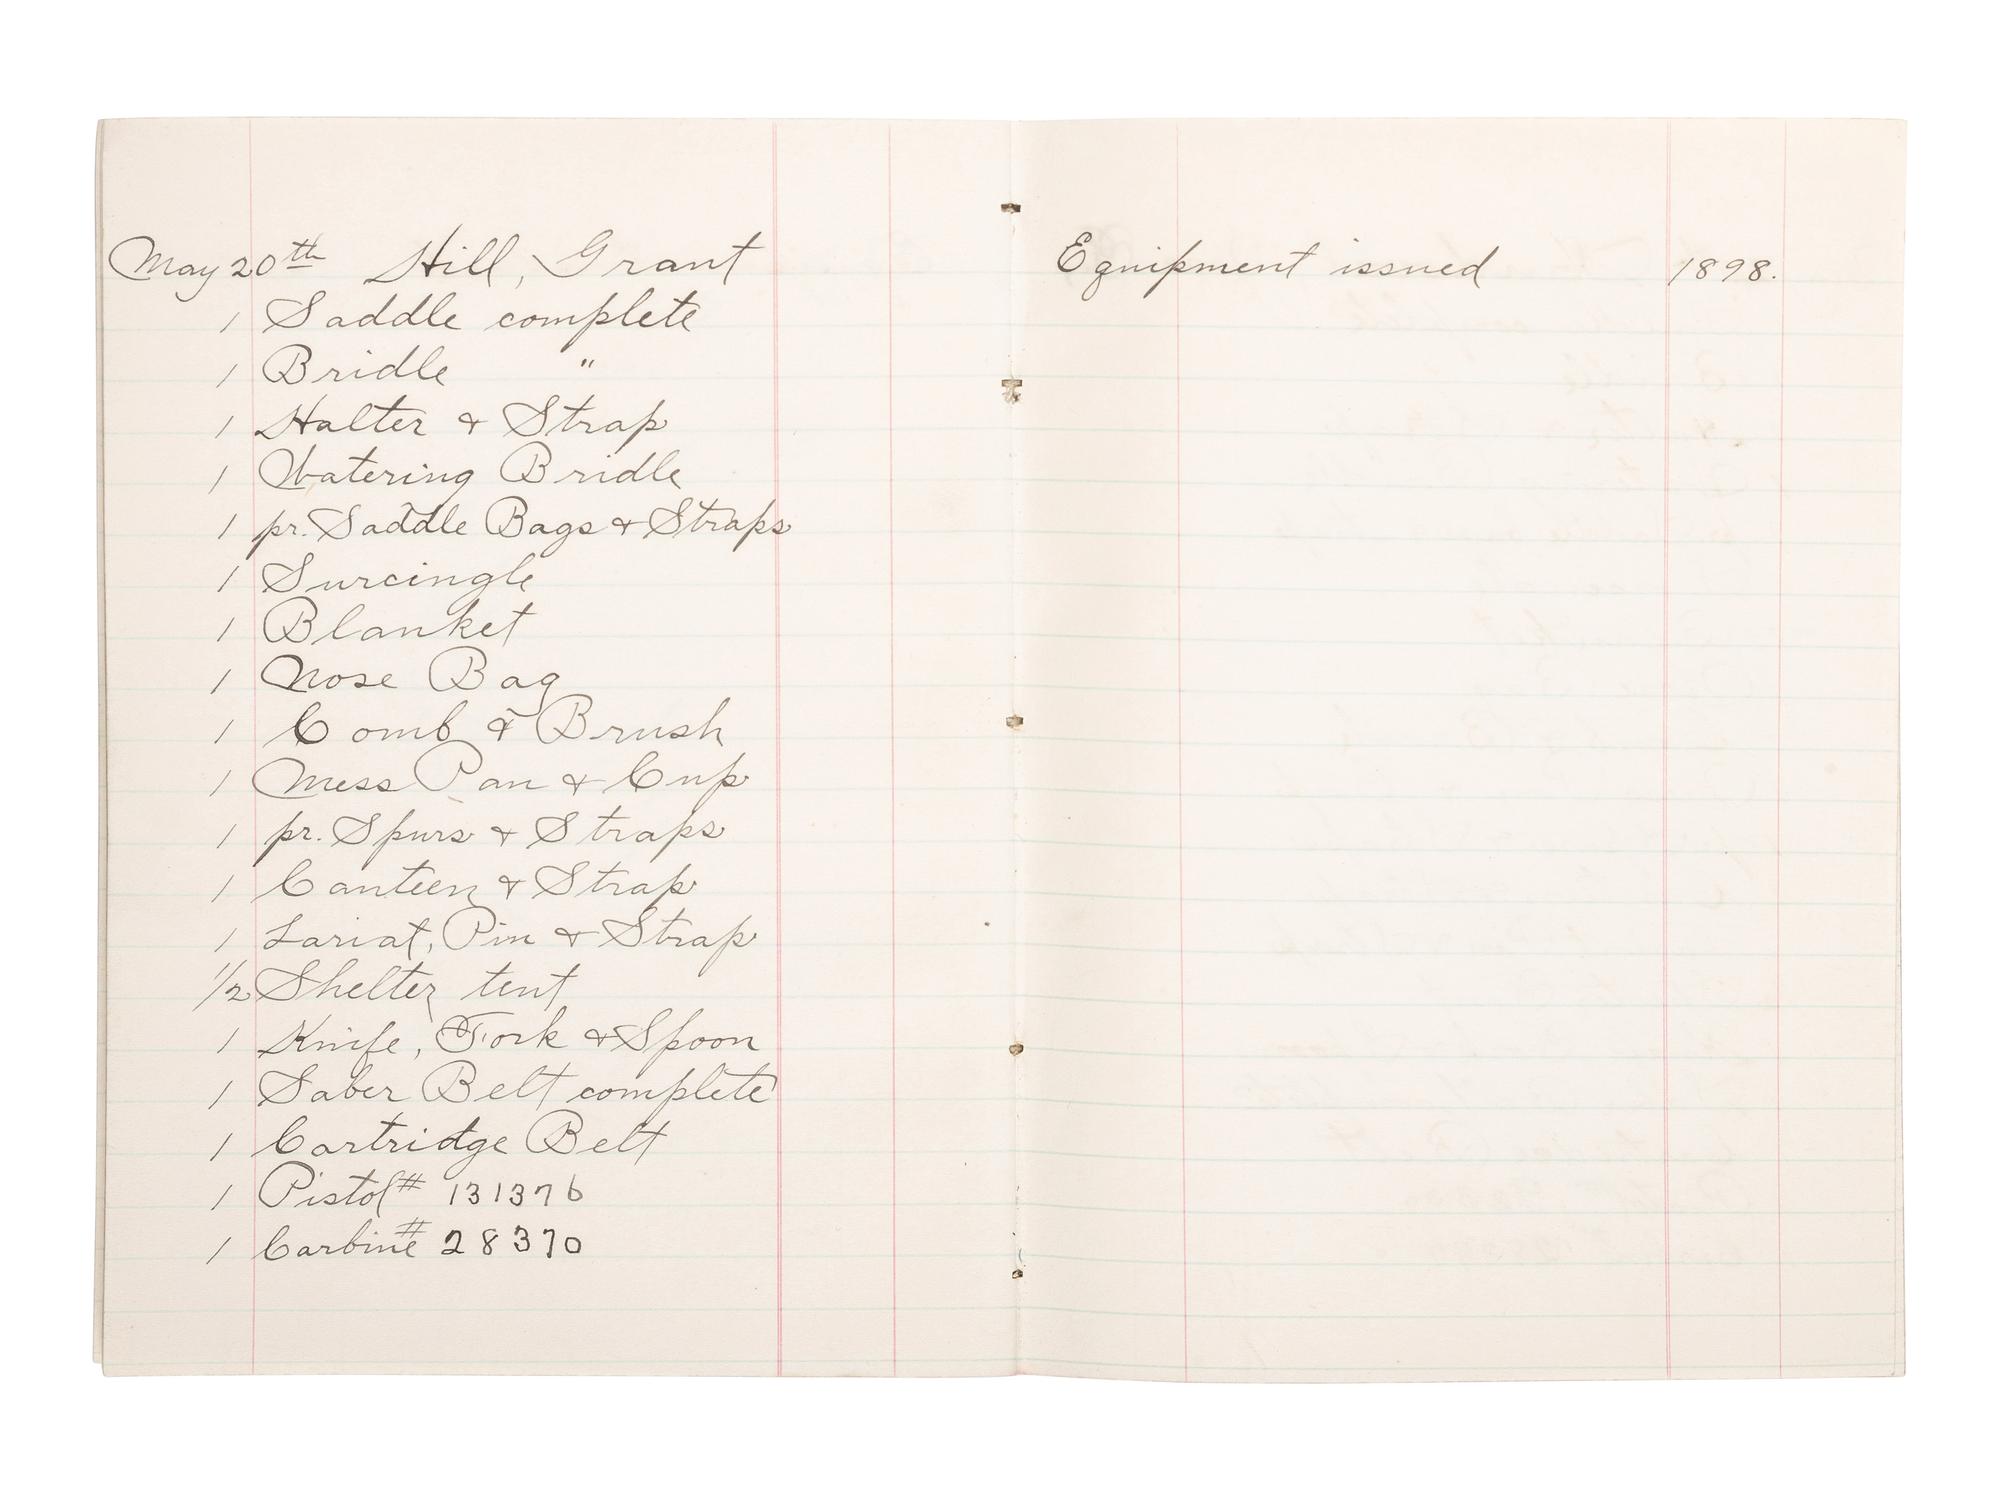 May 20th Hill, Grant
1 Saddle complete
1 Bridle "
1 Halter & Strap
1 Watering Bridle
1 pr. Saddle Bags & Straps
1 Surcingle
1 Blanket
1 Nose Bag
1 Comb & Brush
1 Mess Pan & Cup
1 pr. Spurs & Straps
1 Canteen & Strap
1 Lariat, Pin & Strap
1/2 Shelter tent
1 Knife, Fork & Spoon
1 Saber Belt complete
1 Cartridge Belt
1 Pistol # 131376
1 Carbine # 28370
Equipment issued 1898.